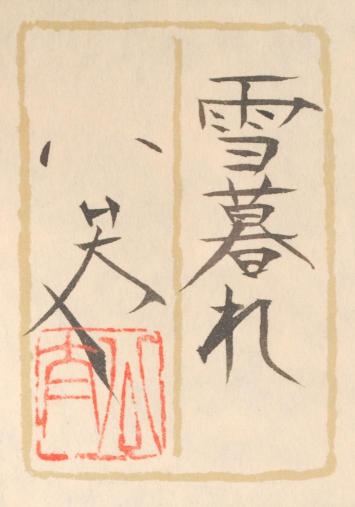 雪暮れ
八笑人